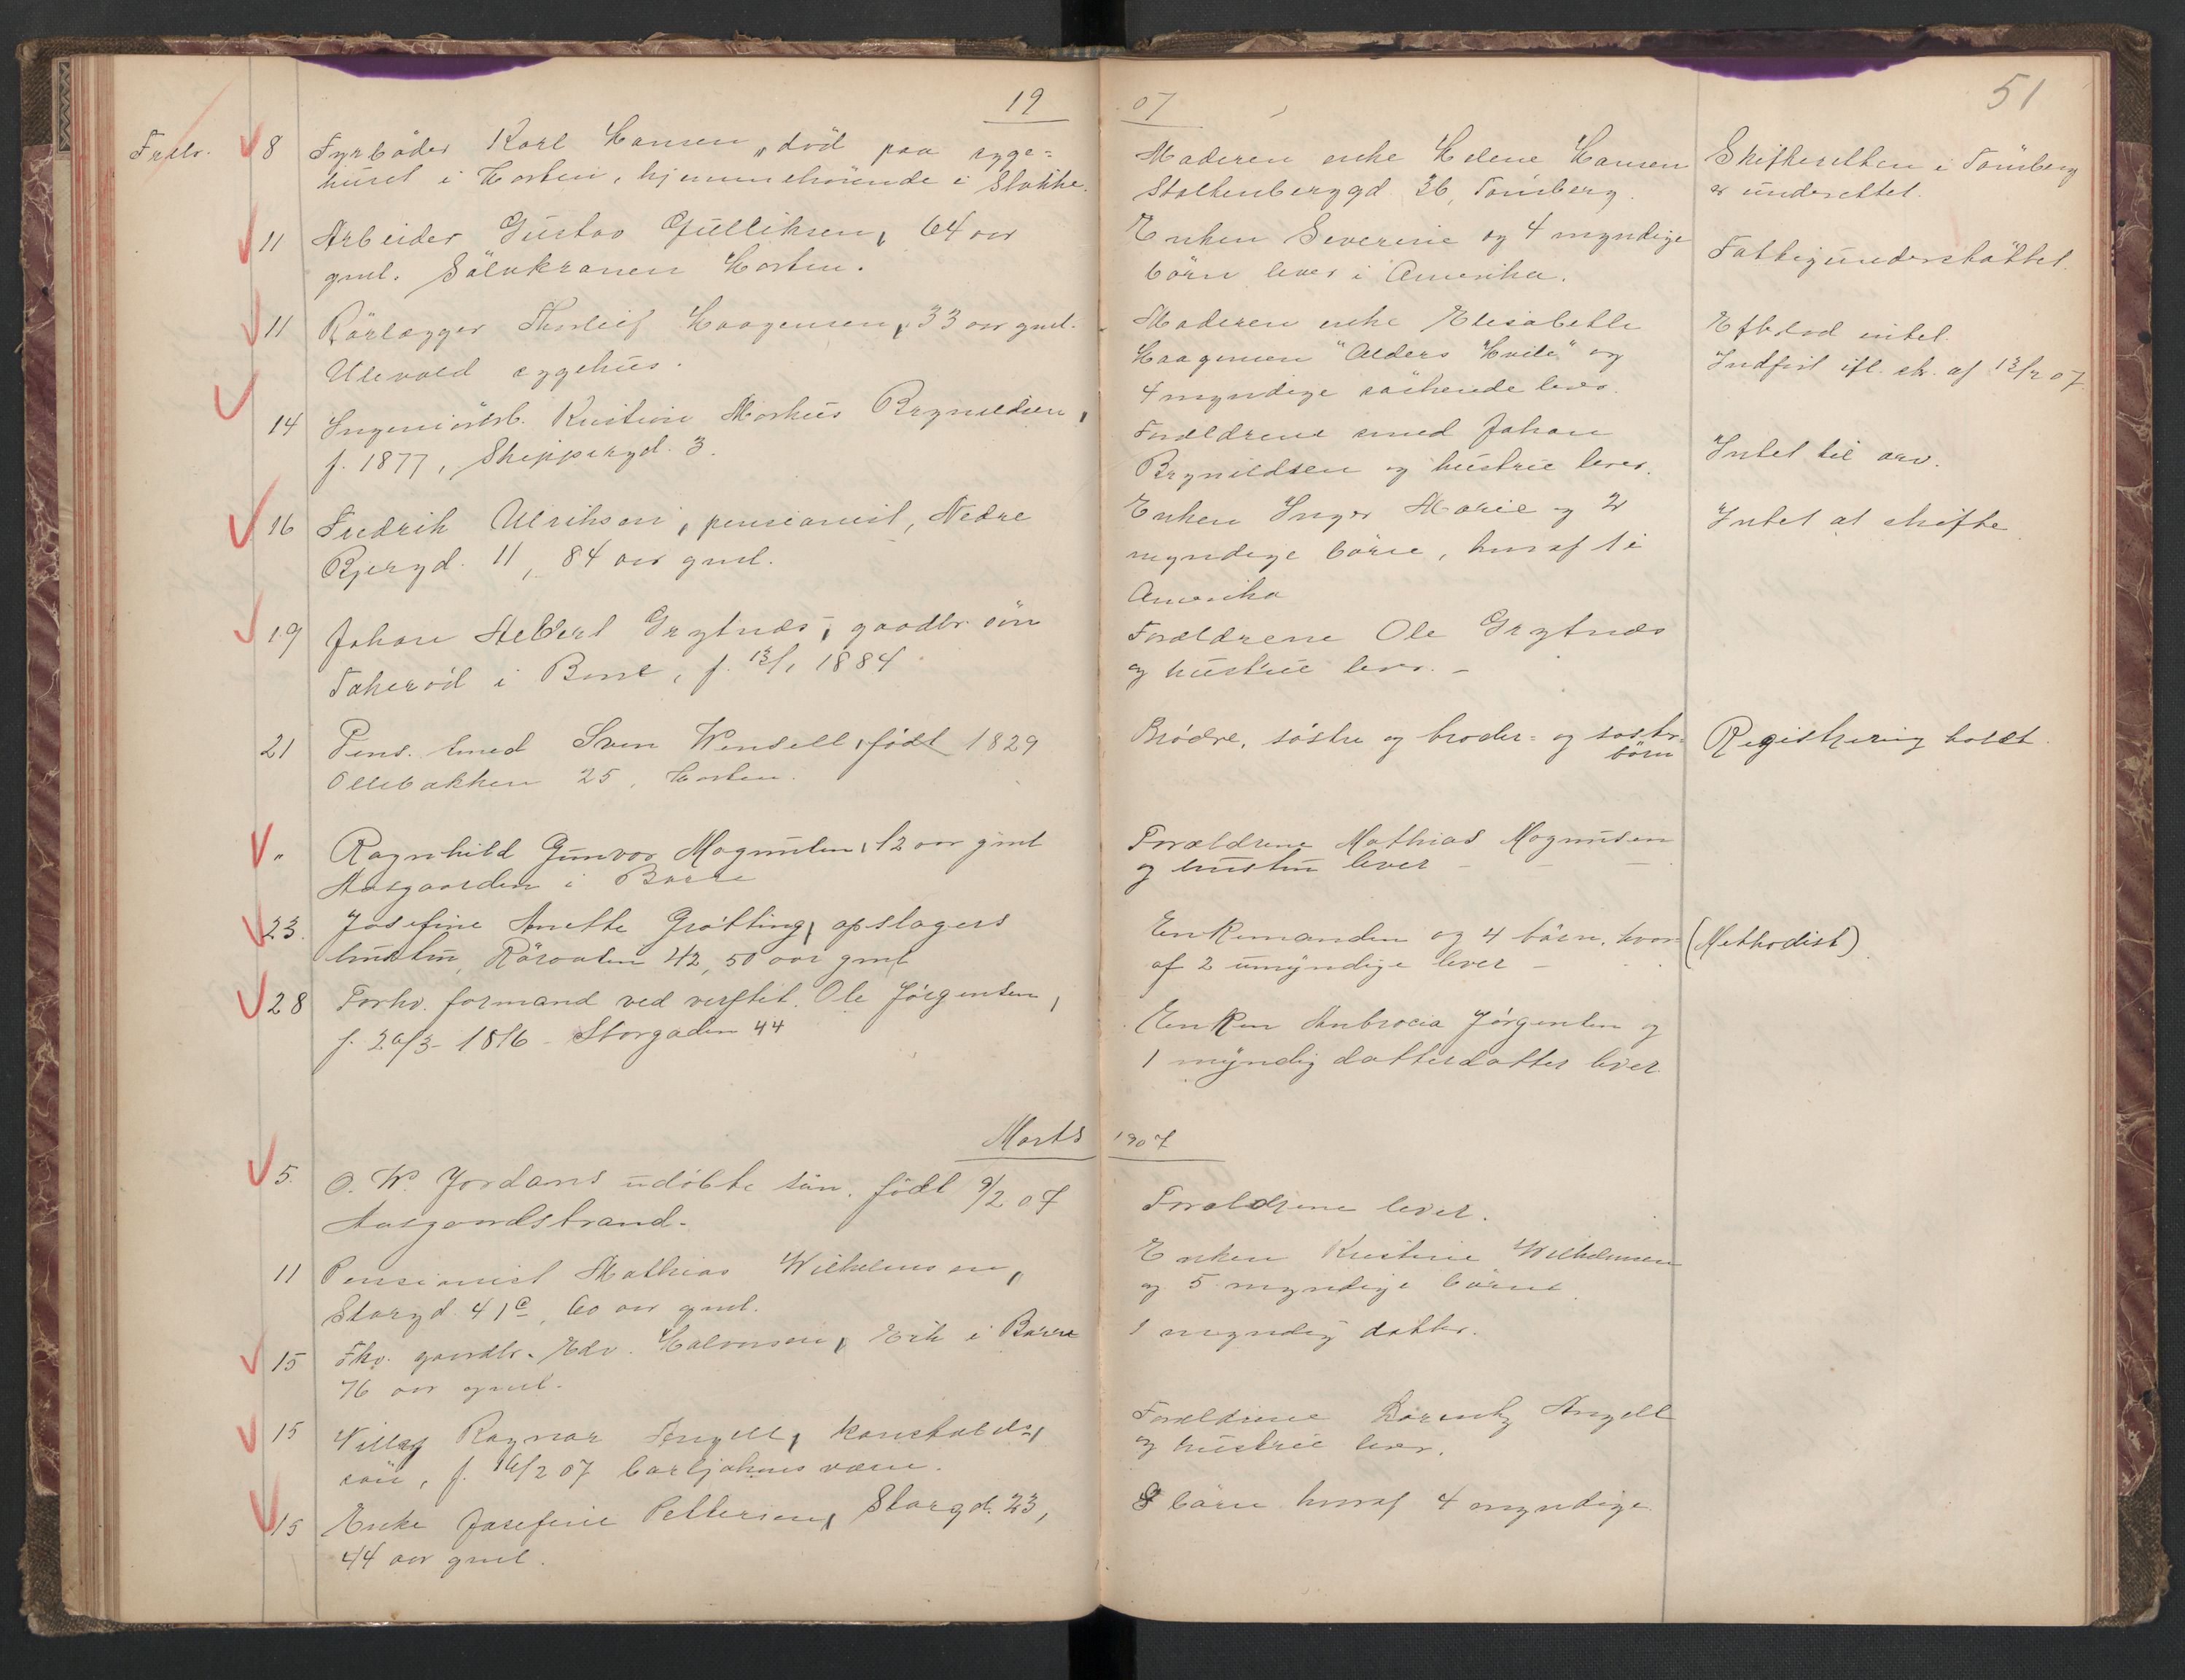 19 07
51
Febr. 8 Fyrböder Karl Hansen, död paa syge=
huset i Horten, hjemmehörende i Stokke.
Moderen enke Helene Hansen
Stoltenberggd 36, Tönsberg.
Skifteretten i Tönsberg
er underettet.
11 Arbeider Gustav Gulliksen, 64 aar
gml. Sölvkranen Horten.
Enken Severine og 4 myndige
börn lever i Amerika.
Fattigunderstöttet.
11 Rörlægger Thorleif Haagensen, 33 aar gml.
Ulevold sygehus.
Moderen enke Elisabeth
Haagensen "Alders Hvile" og
4 myndige söskende lever.
Efterlod intet.
Indfört ifl. sk. af 13/2 07
14 Ingeniörb. Kristian Markus Brynildsen,
f. 1877, Skippergd. 3.
Forældrene smed Johan
Brynildsen og hustru lever.
Intet til arv.
16 Fredrik Ulriksen, pensionist, Nedre
Bjergd. 11, 84 aar gml.
Enken Inger Marie og 2
myndige börn, hvoraf 1 i
Amerika
Intet at skifte
19 Johan Helbert Grytnæs, gaardbr. sön
Fakeröd i Borre, f. 13/1 1884
Forældrene Ole Grytnæs
og hustru lever. -
21 Pens. smed Sven Wensell, födt 1829
Ollebakken 25, Horten.
Brödre, söstre og broder= og söster=
börn
Registrering holdt.
" Ragnhild Gunvor Magnusen, 12 aar gml
Aasgaarden i Borre
Forældrene Mathias Magnusen
og hustru lever - - -
23. Josefine Anette Grötting, opslagers
hustru, Röraaten 42, 50 aar gml
Enkemanden og 4 börn, hvor=
af 2 umyndige lever -
(Methodist).
28 Forhv. formand ved verftet. Ole Jörgensen,
f. 20/3 - 1816 - Storgaden 44
Enken Ambrocia Jörgensen og
1 myndig datterdatter lever.
Marts 1907
5. O. W. Jordans udöbte sön. födt 9/2 07
Aasgaardstrand.
Forældrene lever.
11 Pensionist Mathias Wilhelmsen,
Storgd. 41c, 60 aar gml.
Enken Kristine Wilhelmsen
og 5 myndige börn.
15 Fhv. gaardbr. Edv. Halvorsen, Eik i Borre
76 aar gml.
1 myndig datter.
15 Willy Ragnar Angell, konstabels
sön, f. 14/2 07 Carljohansværn.
Forældrene Angell
og hustru lever.
15 Enke Josefine Pettersen, Storgd. 23,
44 aar gml.
8 börn hvoraf 4 myndige